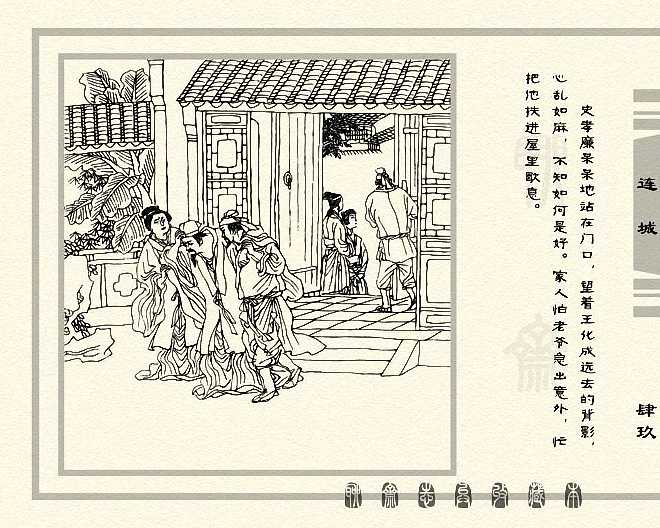 史孝廉呆呆地站在门口，望着王化成远去的背影，
心乱如麻，不知如何是好。家人怕老爷急出意外，忙
把他扶进屋里歇息。
连城
肆玖